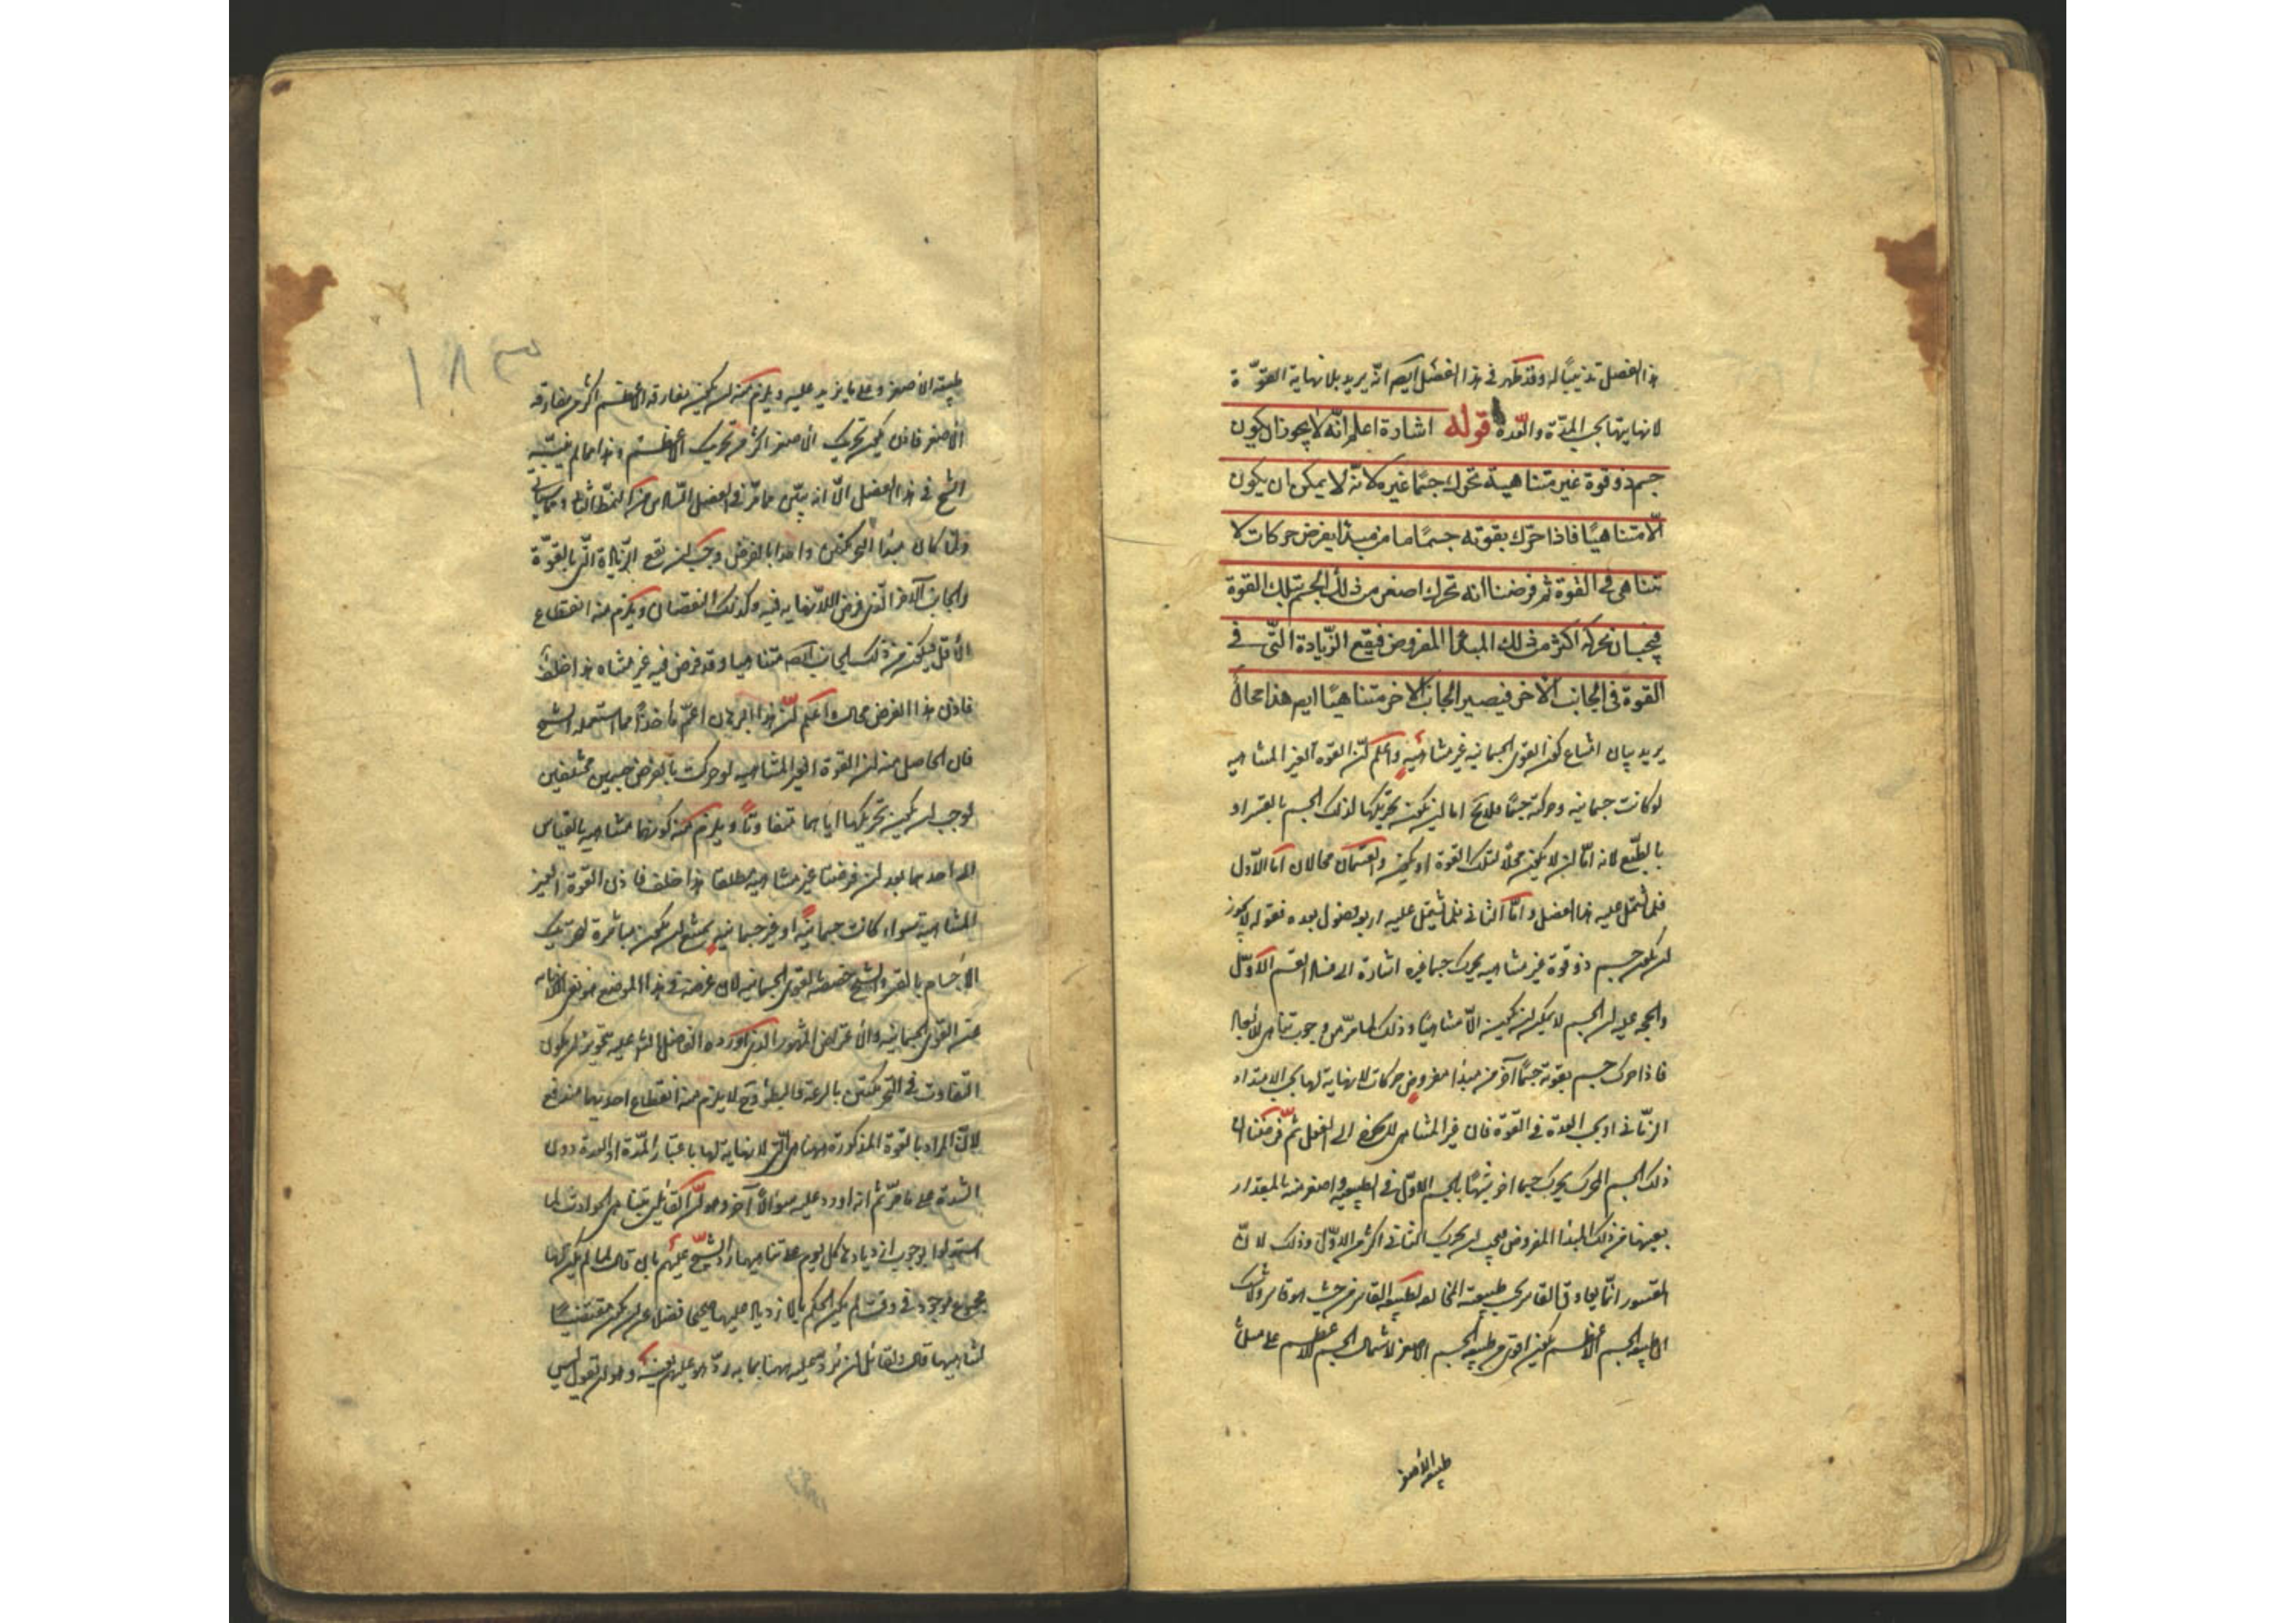 هذا الفصل تذنيبًا له وقد ظهر في هذا الفصل ايضا انه يريد بلا نهاية القوّة
لا نهايتها بحسب المدّة والعدّة قوله اشارة اعلم انّه لا يجوز ان يكون
جسم ذو قوة غير متناهية تحرك جسمًا غيره لانّه لا يمكن ان يكون
الّا متناهيًا فاذا حرّك بقوته جسمًا ما من مبدا يفرض حركات لا
تتناهى في القوة ثم فرضنا انه تحرك اصغر من ذلك الجسم بتلك القوة
فيجب ان تحركه اكثر من ذلك المبدا المفروض فيقع الزّيادة الّتى في
القوة في الجانب الاخر فيصير الجانب الاخر متناهيًا ايضا هذا محالٌ
يريد بيان امتناع كون القوى الجسمانية غير متناهية واعلم انّ القوّة الغير المتناهية
لو كانت جسمانية وحركت جسمًا فلا يخ اما ان يكون تحريكها لذلك الجسم بالقسر او
بالطّبع لانه امّا ان لا يكون محلّا لتلك القوة او يكون والقسمان محالان امّا الاوّل
فلما يشتمل عليه هذا الفصل وامّا الثاني فلما يشتمل عليه اربعة فصول بعده فقوله لا يجوز
ان يكون جسم ذو قوة غير متناهية يحرك جسما غيره اشارة الى فساد القسم الاوّل
والحجة عليه ان الجسم لا يمكن ان يكون الّا متناهيًا وذلك لما مرّ من وجوب تناهى الابعاد
فاذا حرك جسم بقوته جسمًا آخر من مبدا مفروض حركات لا نهاية لها بحسب الامتداد
الزّماني او بحسب العدّة في القوّة فان غير المتناهى لا يخرج الى الفعل ثمّ فرضنا ان
ذلك الجسم المحرك يحرك جسما اخر شبيهًا بالجسم الاوّل في الطبيعة واصغر منه بالمقدار
بعينها من ذلك المبدا المفروض فيجب ان يحرك الثاني اكثر من الاوّل وذلك لانّ
المقسور انّما يعاوق القاسر بحسب طبيعته المخالفة لطبيعة القاسر من حيث هو قاسر ولا شك
ان طبيعة الجسم الاعظم يكون اقوى من طبيعة الجسم الاصغر لاشتمال الجسم الاعظم على مثل
طبيعة الاصغر
١٨٣
طبيعة الاصغر وعلى ما يزيد عليه ويلزم منه ان يكون معاوقة الاعظم اكثر من معاوقة
الاصغر فاذن يكون تحريك الاصغر اكثر من تحريك الاعظم وهذا مما لم يبيّنه
الشيخ في هذا الفصل الّا انه يتبيّن مما مرّ في الفصل السادس من النمط الثاني
ولمّا كان مبدا التحريكين واحدا بالفرض وجب ان تقع الزّيادة الّتى بالقوّة
في الجانب الآخر الّذى فرض اللانهاية فيه وكذلك النقصان ويلزم منه انقطاع
الاقل فيكون من ذلك الجانب ايضا متناهيا وقد فرض فيه غير متناه هذا خلف
فاذن هذا الفرض محال واعلم انّ هذا البرهان اعمّ مأخذًا مما استعمله الشيخ
فان الحاصل منه ان القوة الغير المتناهية لو حركت بالفرض جسمين مختلفين
لوجب ان يكون تحريكها اياهما متفاوتًا ويلزم منه كونها متناهية بالقياس
الى احدهما بعد ان فرضت غير متناهية مطلقا هذا خلف فاذن القوّة الغير
المتناهية سواء كانت جسمانيّة او غير جسمانية يمتنع ان يكون مباشرة لتحريك
الاجسام بالقسر والشيخ خصّصه بالقوى الجسمانية لان غرضه في هذا الموضع هو نفى اللانهاية
عن القوى الجسمانية والاعتراض المشهور الذى اورده الفاضل الشارح عليه تجويز ان يكون
التفاوت في التحريكين بالسرعة والبطؤ وح لا يلزم منه انقطاع احدهما مندفع
لانّ المراد بالقوة المذكورة هيهنا هى الّتى لا نهاية لها باعتبار المدّة او العدة دون
الشدة على ما مرّ ثم انه اورد عليه سؤالًا آخر وهو انّ القائلين بتناهى الحوادث لما
استدلوا بوجوب ازديادها كل يوم على تناهيها ردّ الشيخ عليهم بان قال لما لم يكن لها
مجموع موجود في وقت لم يكن الحكم بالازدياد عليها صحيحا فضلا عن ان يكون مقتضيًا
لتناهيها قال ولقائل ان يردّ عليه هيهنا بما به ردّ هو عليهم بعينه وهو ان يقول ليس